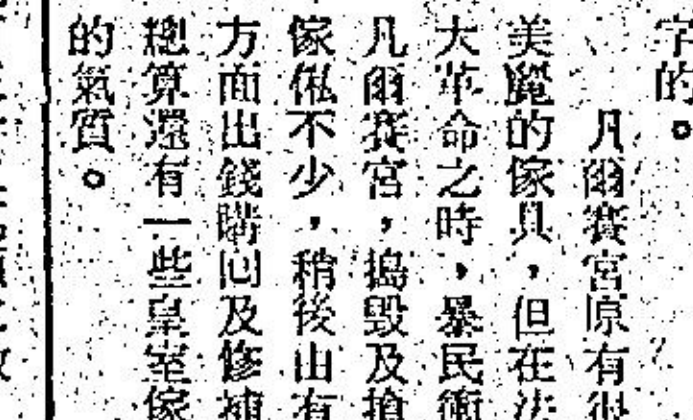 字的。
凡爾賽宮原有很
美麗的傢具，但在法
大革命之時，暴民衝
凡爾賽宮，搗毀及搶
傢俬不少，稍後由有
方面出錢購回及修補
總算還有一些皇室傢
的氣質。